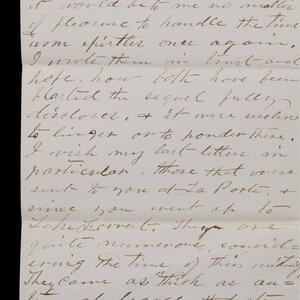 it would be to me no matter
of pleasure to handle the time
worn epistles once again.
I wrote them in trust and
hope. how both have been
blasted the sequel fully
discloses, & it were useless
to linger or to ponder there.
I wish my last letters in
particular. Those that were
sent to you at La Porte, &
since you went up to
They are
quite numerous, consid-
ering the time of their writing
They came as thick as au-